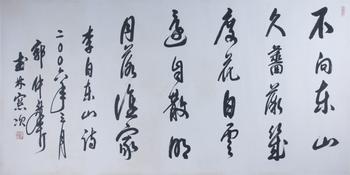 不向东山
久蔷薇几
度花白云
还自散明
月落谁家
李白东山诗
二〇〇六年三月
郭仲